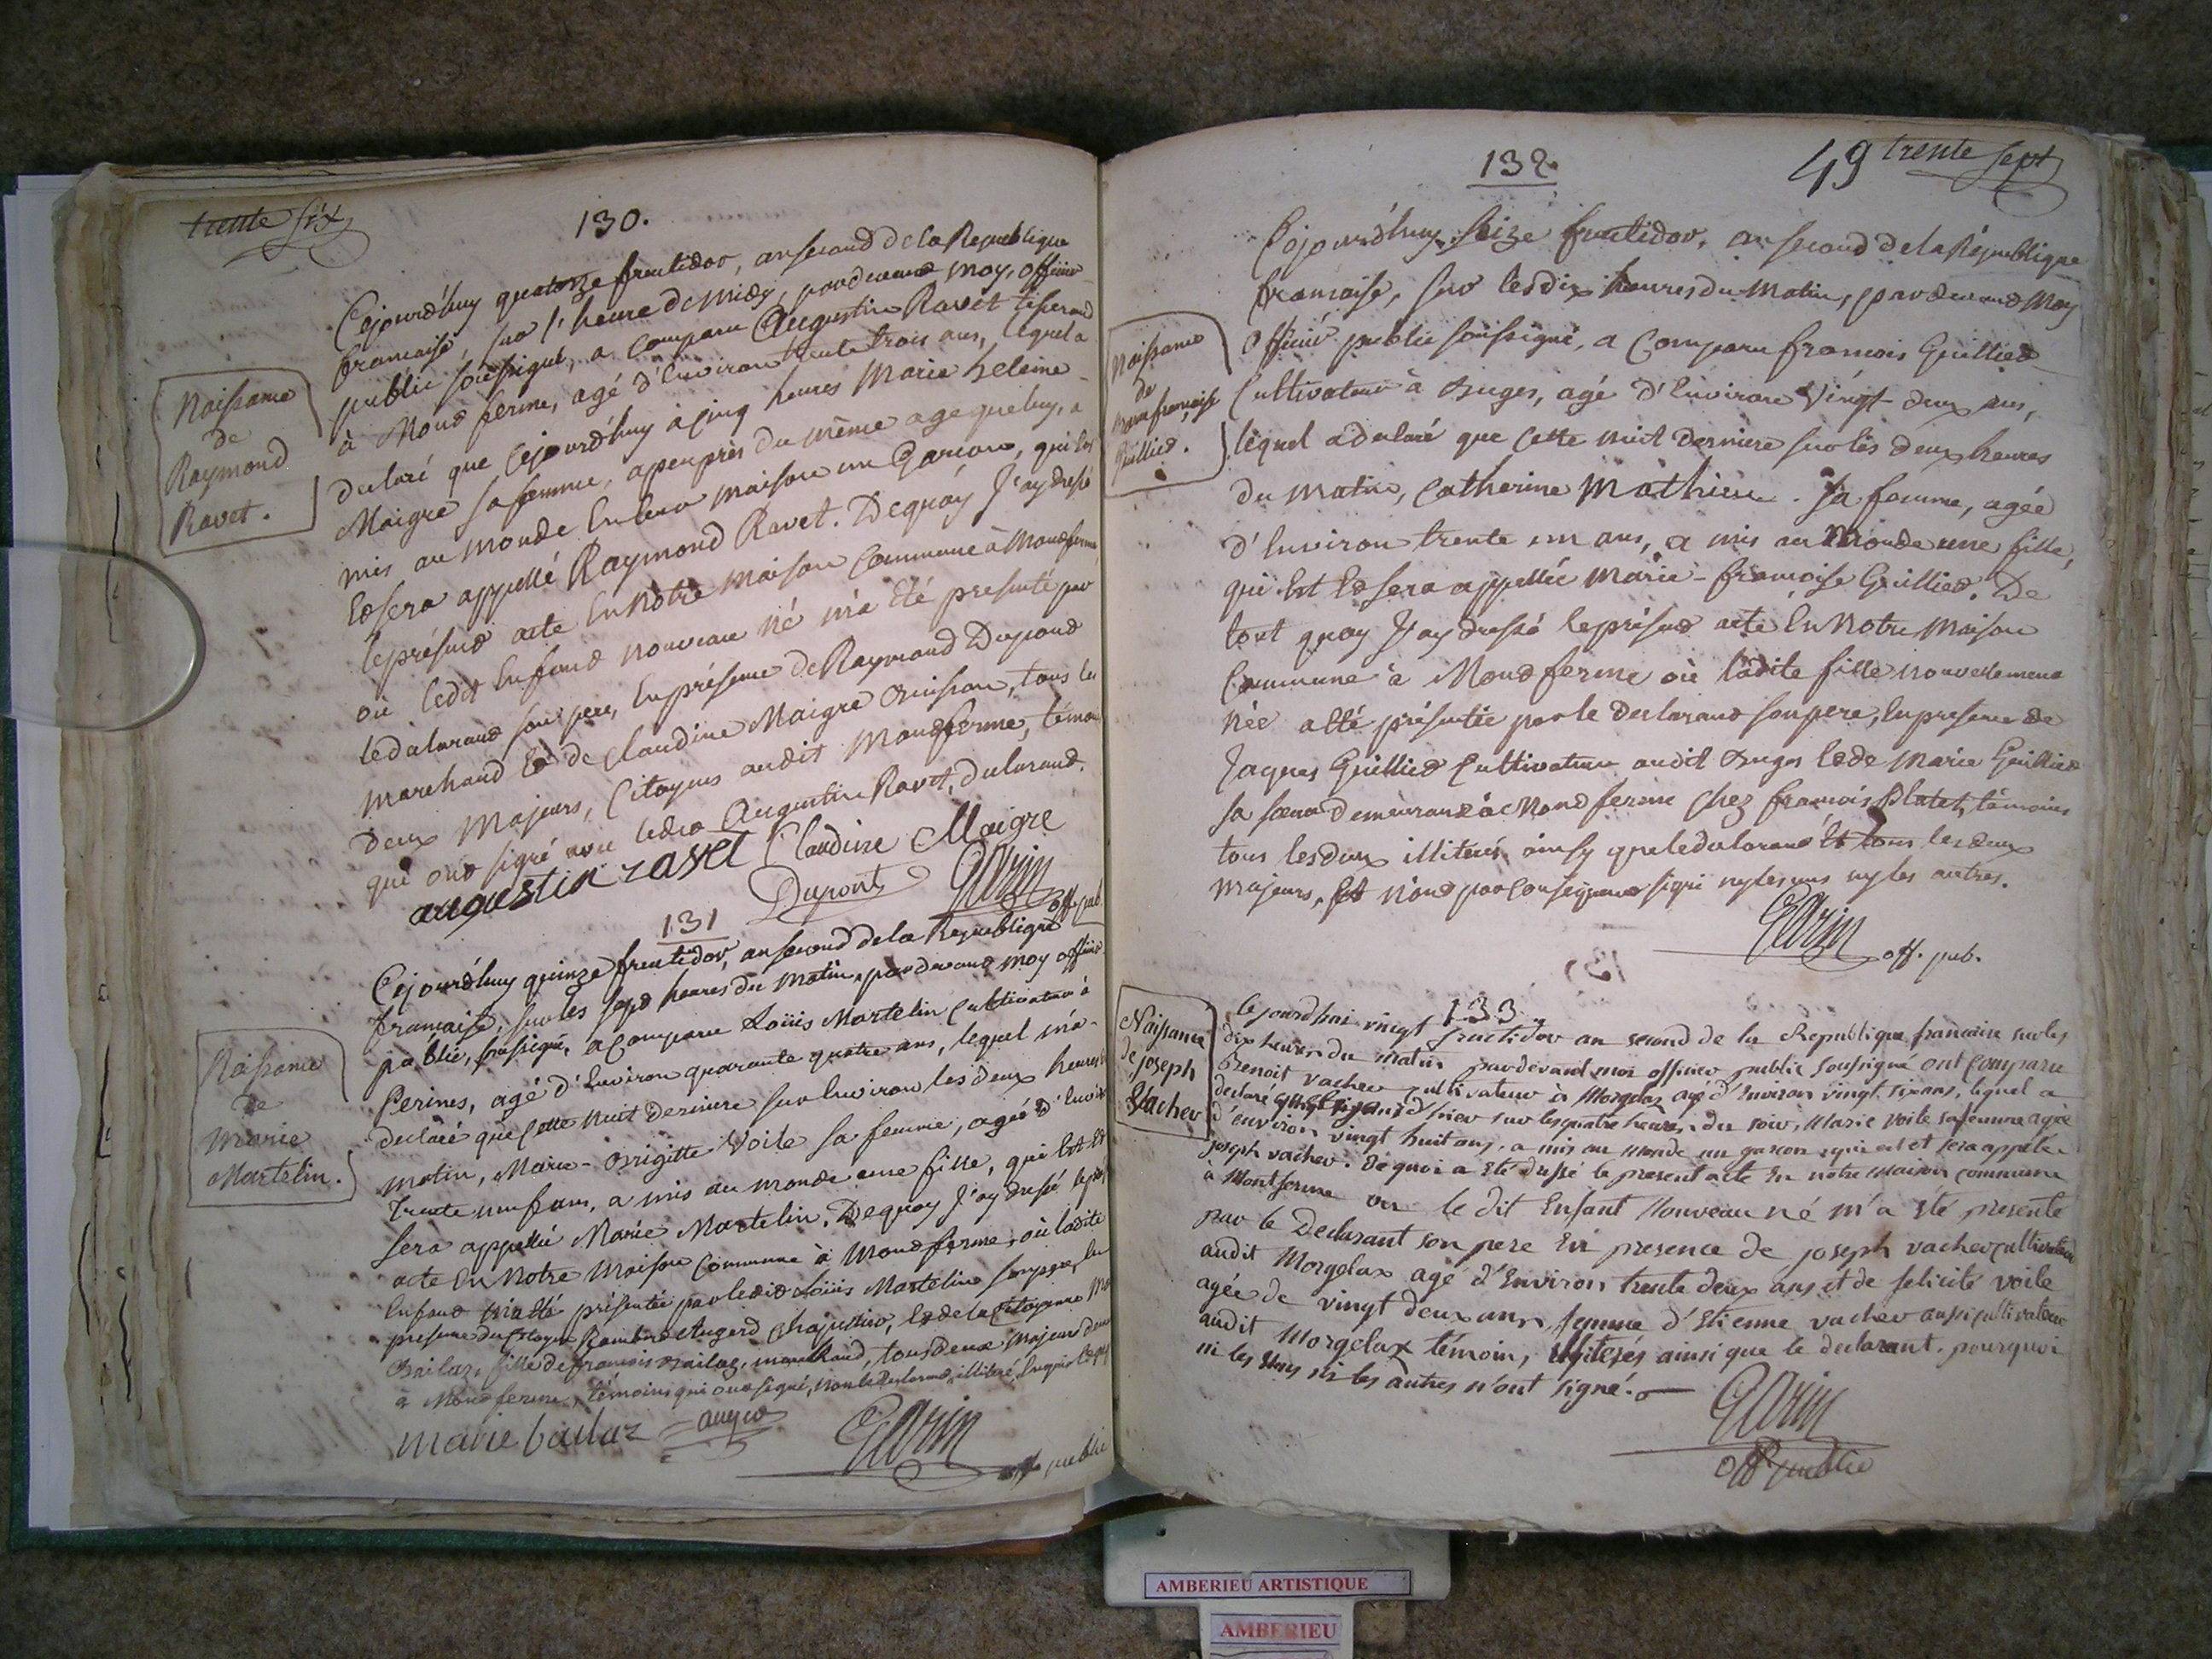 trente six
130.
Naissance
de
Raymond
Ravet.
Cejourd'huy quatorze fructidor, an second de la Republique
francaise, sur l'heure de midy, pardevand moy, officier
public soussigné, a comparu Augustin Ravet tisserand
à Mond ferme, agé d'Environ trente trois ans, lequel a
declaré que Cejourd'huy à cinq heures Marie heleine
Maigre sa femme, apeuprès du même age que luy, a
mis au monde En leur maison un Garcon, qui Est
Et sera appellé Raymond Ravet. De quoy J'ay dressé
le présend acte En Notre maison Commune à Mondferme
où ledit Enfand nouveau né m'a Eté presenté par
le declarand son pere, En présence de Raymond Dupond
marchand Et de Claudine Maigre tous les
deux Majeurs, Citoyens audit Mondferme, témoins
qui ond signé avec ledid Augustin Ravet, declarand.
augustin ravet Claudine Maigre
Dupont Garin off. pub.
131
Naissance
de
Marie
Martelin.
Cejourd'huy quinze fructidor, an second de la Republique
francaise, sur les sept heures du matin, pardevand moy officier
public, soussigné, a comparu Loüis Martelin Cultivateur à
Perines, agé d'Environ quarante quatre ans, lequel m'a
declaré que Cette nuit derniere sur Environ les deux heures du
matin, Marie-Brigitte Voile sa femme, agée d'Environ
trente neuf ans, a mis au monde une fille, qui Est Et
sera appellée Marie Martelin. De quoy J'ay dressé le présend
acte En Notre Maison Commune à Mond ferme, où ladite
Enfand m'a Eté présentée par ledid Loüis Martelin son pere, En
presence du Citoyen Rambert Augerd Et de la Citoyenne
Bailaz, fille de francois Bailaz, marchand, tous deux Majeurs
à Mond ferme, témoins qui ond signé, non le declarand, illiteré,
marie bailaz augerd Garin off. public
132.
49 trente sept
Naissance
de
Marie francoise
Guillied.
Cejourd'huy Seize fructidor, an second de la République
francaise, sur les dix heures du matin, pardevand Moy
Officier public soussigné, a Comparu francois Guillied
Cultivateur à Bruges, agé d'Environ Vingt deux ans,
lequel a declaré que Cette nuit derniere sur les deux heures
du Matin, Catherine Mathieu. Sa femme, agée
d'Environ trente un ans, a mis au Monde une fille,
qui Est Et sera appellée Marie-francoise Guillied. De
tout quoy J'ay dressé le présend acte En Notre Maison
Commune à Mond ferme où ladite fille nouvellement
née a Eté présentée par le declarand son pere, En presence de
Jaques Guillied Cultivateur audit Bruges Et de Marie Guillied
sa sœur demeurand à Mond ferme chez francois Platet, témoins
tous les deux illiterés, ainsy que le declarand Et tous les deux
majeurs, Et n'ond par Conséquend signé ny les uns ny les autres.
Garin off. pub.
133.
Naissance
de joseph
Vacher
Cejourdhui vingt fructidor an second de la Republique francaise sur les
dix heures du matin pardevant moi officier public Soussigné ont comparu
Benoit Vacher cultivateur à Morgelax agé d'Environ vingt six ans, lequel a
declaré d'hier sur les quatre heures du soir, Marie Voile sa femme agée
d'environ vingt huit ans, a mis au monde un garcon qui est et sera appellé
joseph vacher. De quoi a été dressé le present acte En notre maison commune
à Montferme ou le dit Enfant Nouveau né m'a été presenté
par le Declarant son pere En presence de joseph vacher cultivateur
audit Morgelax agé d'Environ trente deux ans et de felicité voile
agée de vingt deux ans, femme d'Etienne vacher aussi cultivateur
audit Morgelax témoin, illiterés ainsi que le declarant. pourquoi
ni les uns ni les autres n'ont signé.
Garin
off public
AMBERIEU ARTISTIQUE
AMBERIEU